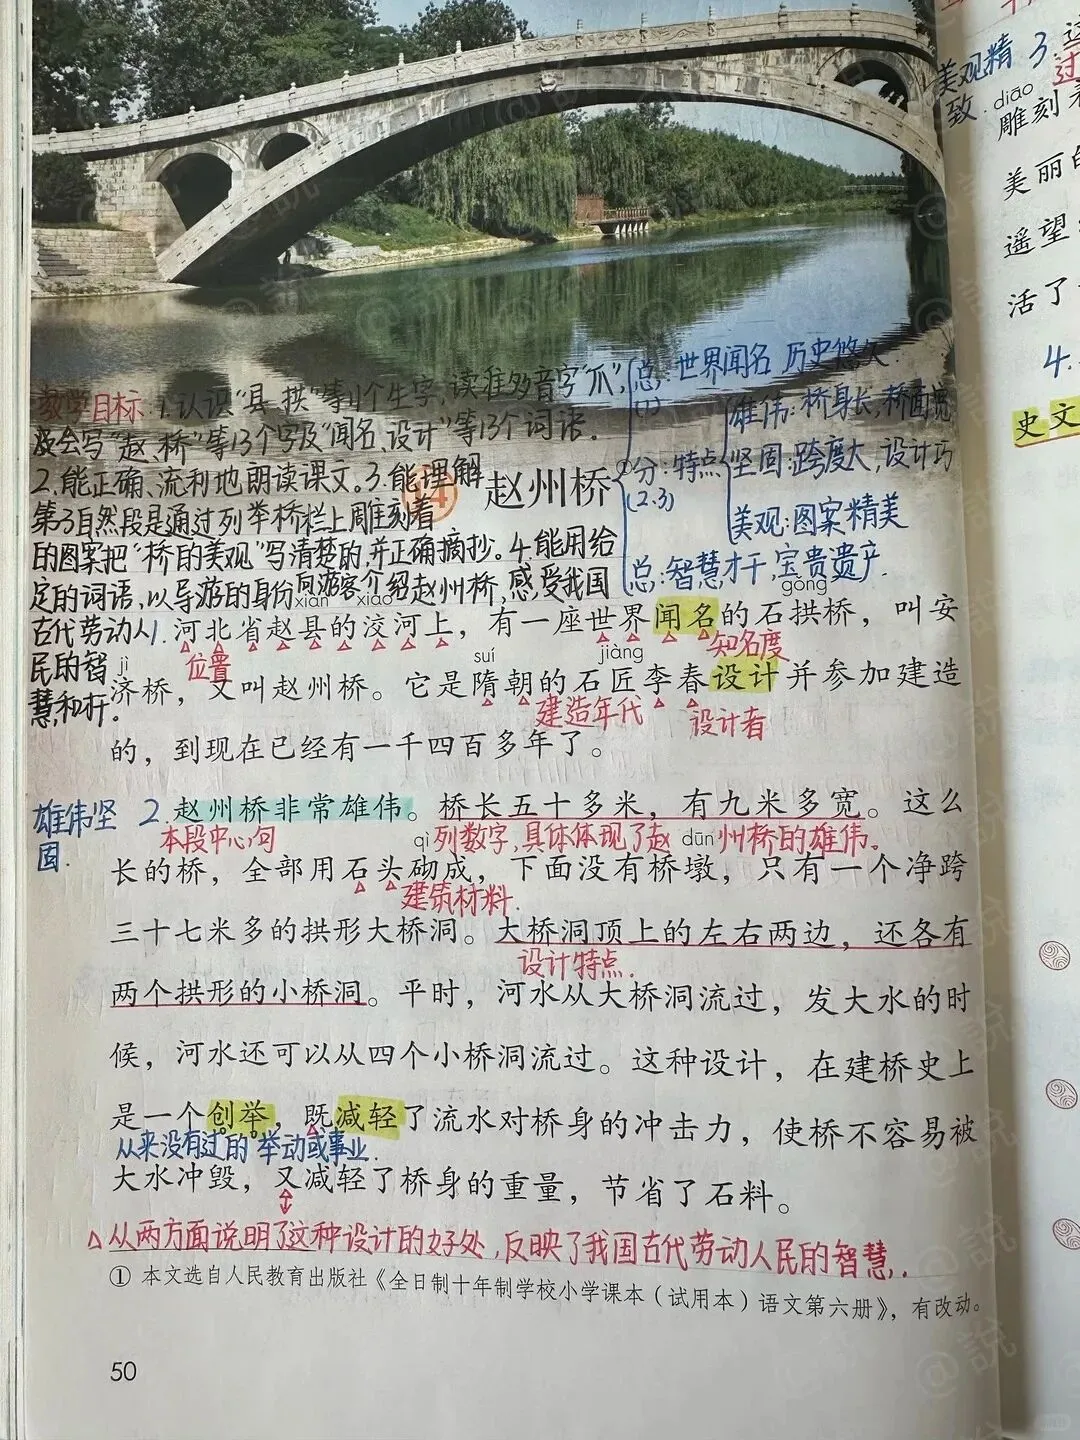 教学目标 1.认识“县、拱”等11个生字,读准多音字“爪”,
及会写“赵、桥”等13个字及“闻名、设计”等13个词语。
2.能正确、流利地朗读课文。3.能理解
第3自然段是通过列举桥栏上雕刻着
的图案把“桥的美观”写清楚的,并正确摘抄。4.能用给
定的词语,以导游的身份向游客介绍赵州桥,感受我国
古代劳动人
民的智
慧和才干。
14 赵州桥
总:世界闻名 历史悠久
(1)
分:特点
(2.3)
雄伟:桥身长,桥面宽
坚固:跨度大,设计巧
美观:图案精美
总:智慧才干,宝贵遗产.
xiàn xiáo gǒng
1.河北省赵县的洨河上,有一座世界闻名的石拱桥,叫安
位置 知名度
jì suí jiàng
济桥,又叫赵州桥。它是隋朝的石匠李春设计并参加建造
建造年代 设计者
的,到现在已经有一千四百多年了。
雄伟坚
固.
2.赵州桥非常雄伟。桥长五十多米,有九米多宽。这么
本段中心句 列数字,具体体现了赵州桥的雄伟。
qì dūn
长的桥,全部用石头砌成,下面没有桥墩,只有一个净跨
建筑材料.
三十七米多的拱形大桥洞。大桥洞顶上的左右两边,还各有
设计特点.
两个拱形的小桥洞。平时,河水从大桥洞流过,发大水的时
候,河水还可以从四个小桥洞流过。这种设计,在建桥史上
是一个创举,既减轻了流水对桥身的冲击力,使桥不容易被
从来没有过的举动或事业.
大水冲毁,又减轻了桥身的重量,节省了石料。
从两方面说明了这种设计的好处,反映了我国古代劳动人民的智慧.
① 本文选自人民教育出版社《全日制十年制学校小学课本(试用本)语文第六册》,有改动。
50
美观精
致.
3.这
过
diāo
雕刻着
美丽的
遥望
活了
4.
史文
@說